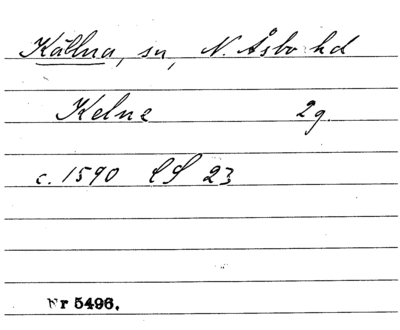 Källna, sn, N. Åsbo hd
Kelne 2g.
c. 1590 LS 23
Nr 5496.